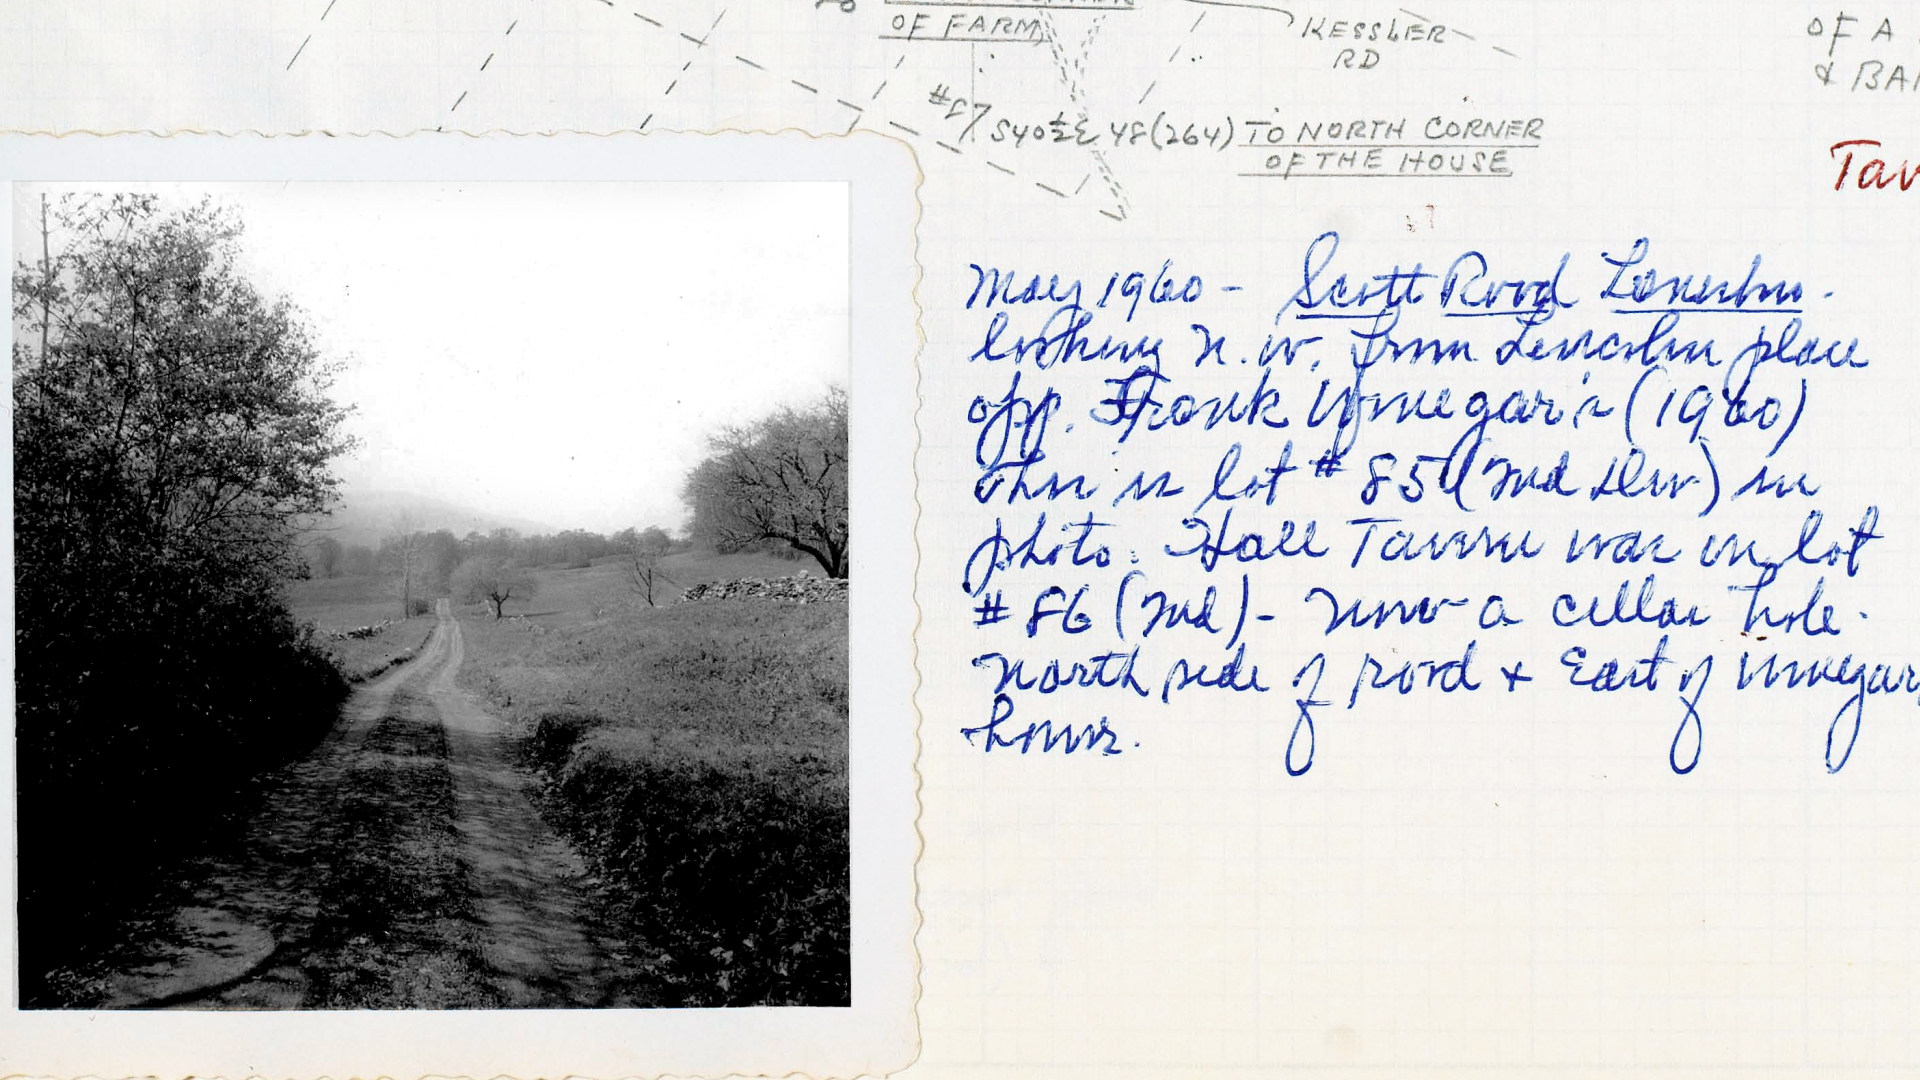 OF FARM
KESSLER
RD
OF A
& BAR
#87 S40½E 48(264) TO NORTH CORNER
OF THE HOUSE
Tav
May 1960 - Scott Road
looking N.W. from Lincoln place
opp. Frank Vinegar's (1960)
This is lot #85 (2nd Div) in
photo. Hall Tavern was in lot
#86 (2nd) - Now a cellar hole.
North side of road & East of Vinegar
house.